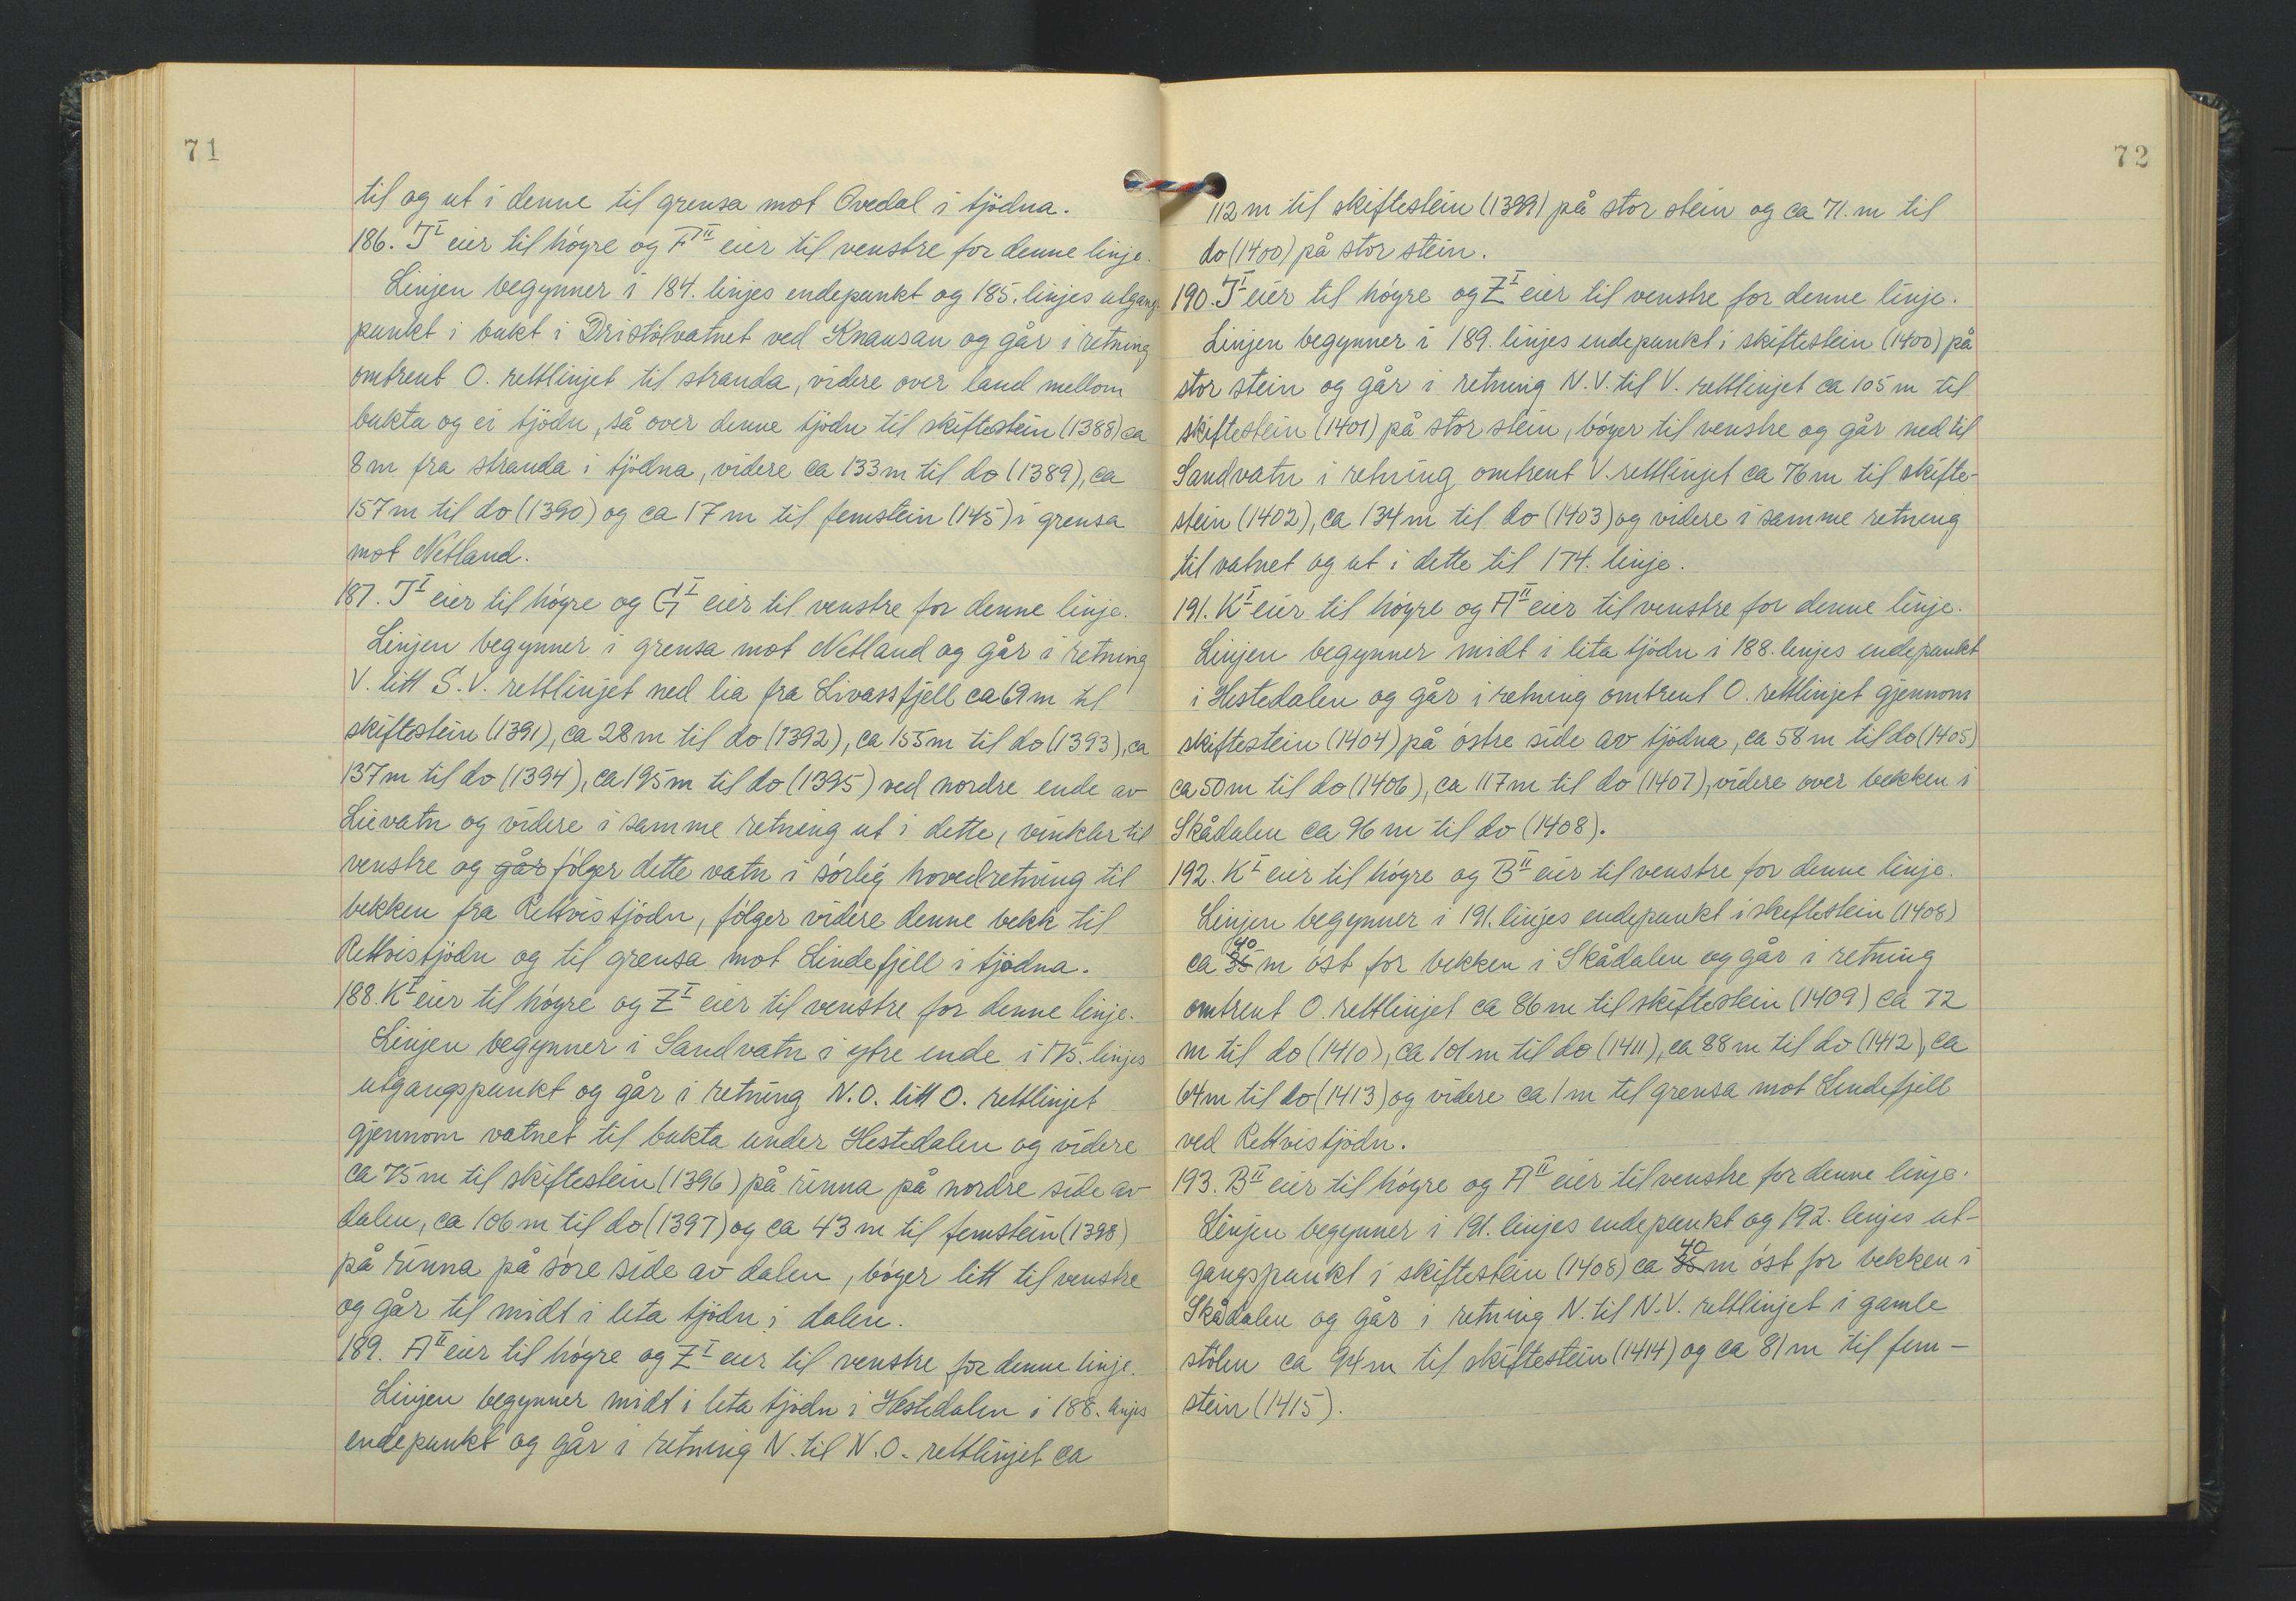 71
til og ut i denne til grensa mot Ovedal i tjödna.
186. J^I eier til högre og F^II eier til venstre for denne linje.
Linjen begynner i 184. linjes endepunkt og 185. linjes utgangs-
punkt i bukt i Dristölvatnet ved Knausan og går i retning
omtrent O. rettlinjet til stranda, videre over land mellom
bukta og ei tjödn, så over denne tjödn til skiftestein (1388) ca
8 m fra stranda i tjödna, videre ca 133 m til do (1389), ca
157 m til do (1390) og ca 17 m til femstein (145) i grensa
mot Netland.
187. J^I eier til högre og G^I eier til venstre for denne linje.
Linjen begynner i grensa mot Netland og går i retning
V. litt S.V. rettlinjet ned lia fra Livassfjell ca 69 m til
skiftestein (1391), ca 28 m til do (1392), ca 155 m til do (1393), ca
137 m til do (1394), ca 195 m til do (1395) ved nordre ende av
Lievatn og videre i samme retning ut i dette, vinkler til
venstre og går fölger dette vatn i sörlig hovedretning til
bekken fra Rettvistjödn, fölger videre denne bekk til
Rettvistjödn og til grensa mot Lindefjell i tjödna.
188. K^I eier til högre og Z^I eier til venstre for denne linje.
Linjen begynner i Sandvatn i ytre ende i 175. linjes
utgangspunkt og går i retning N.O. litt O. rettlinjet
gjennom vatnet til bukta under Hestedalen og videre
ca 75 m til skiftestein (1396) på rinna på nordre side av
dalen, ca 106 m til do (1397) og ca 43 m til femstein (1398)
på rinna på söre side av dalen, böyer litt til venstre
og går til midt i lita tjödn i dalen.
189. A^II eier til högre og Z^I eier til venstre for denne linje.
Linjen begynner midt i lita tjödn i Hestedalen i 188. linjes
endepunkt og går i retning N. til N.O. rettlinjet ca
72
112 m til skiftestein (1399) på stor stein og ca 71. m til
do (1400) på stor stein.
190. J^I eier til högre og Z^I eier til venstre for denne linje.
Linjen begynner i 189. linjes endepunkt i skiftestein (1400) på
stor stein og går i retning N.V. til V. rettlinjet ca 105 m til
skiftestein (1401) på stor stein, böyer til venstre og går ned til
Sandvatn i retning omtrent V. rettlinjet ca 76 m til skifte-
stein (1402), ca 134 m til do (1403) og videre i samme retning
til vatnet og ut i dette til 174. linje.
191. K^I eier til högre og A^II eier til venstre for denne linje.
Linjen begynner midt i lita tjödn i 188. linjes endepunkt
i Hestedalen og går i retning omtrent O. rettlinjet gjennom
skiftestein (1404) på östre side av tjödna, ca 58 m til do (1405)
ca 50 m til do (1406), ca 117 m til do (1407), videre over bekken i
Skådalen ca 96 m til do (1408).
192. K^I eier til högre og B^II eier til venstre for denne linje.
Linjen begynner i 191. linjes endepunkt i skiftestein (1408)
ca 35 40 m öst for bekken i Skådalen og går i retning
omtrent O. rettlinjet ca 86 m til skiftestein (1409) ca 72
m til do (1410), ca 101 m til do (1411), ca 88 m til do (1412), ca
64 m til do (1413) og videre ca 1 m til grensa mot Lindefjell
ved Rettvistjödn.
193. B^II eier til högre og A^II eier til venstre for denne linje.
Linjen begynner i 191. linjes endepunkt og 192. linjes ut-
gangspunkt i skiftestein (1408) ca 35 40 m öst for bekken i
Skådalen og går i retning N. til N.V. rettlinjet i gamle
stölen ca 94 m til skiftestein (1414) og ca 81 m til fem-
stein (1415).